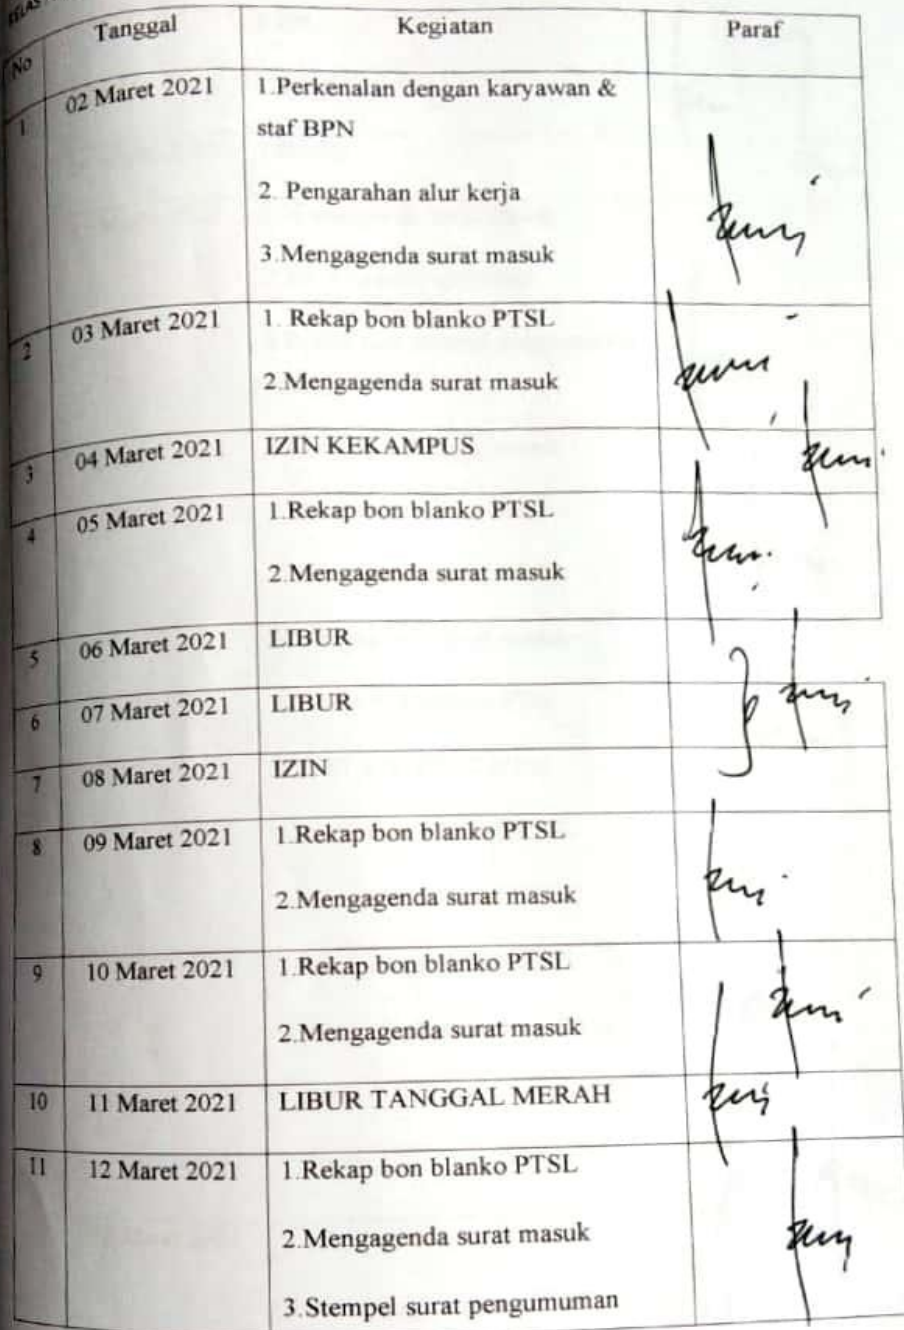 No Tanggal Kegiatan Paraf
1 02 Maret 2021 1.Perkenalan dengan karyawan &
staf BPN
2. Pengarahan alur kerja
3.Mengagenda surat masuk
2 03 Maret 2021 1. Rekap bon blanko PTSL
2.Mengagenda surat masuk
3 04 Maret 2021 IZIN KEKAMPUS
4 05 Maret 2021 1.Rekap bon blanko PTSL
2.Mengagenda surat masuk
5 06 Maret 2021 LIBUR
6 07 Maret 2021 LIBUR
7 08 Maret 2021 IZIN
8 09 Maret 2021 1.Rekap bon blanko PTSL
2.Mengagenda surat masuk
9 10 Maret 2021 1.Rekap bon blanko PTSL
2.Mengagenda surat masuk
10 11 Maret 2021 LIBUR TANGGAL MERAH
11 12 Maret 2021 1.Rekap bon blanko PTSL
2.Mengagenda surat masuk
3.Stempel surat pengumuman